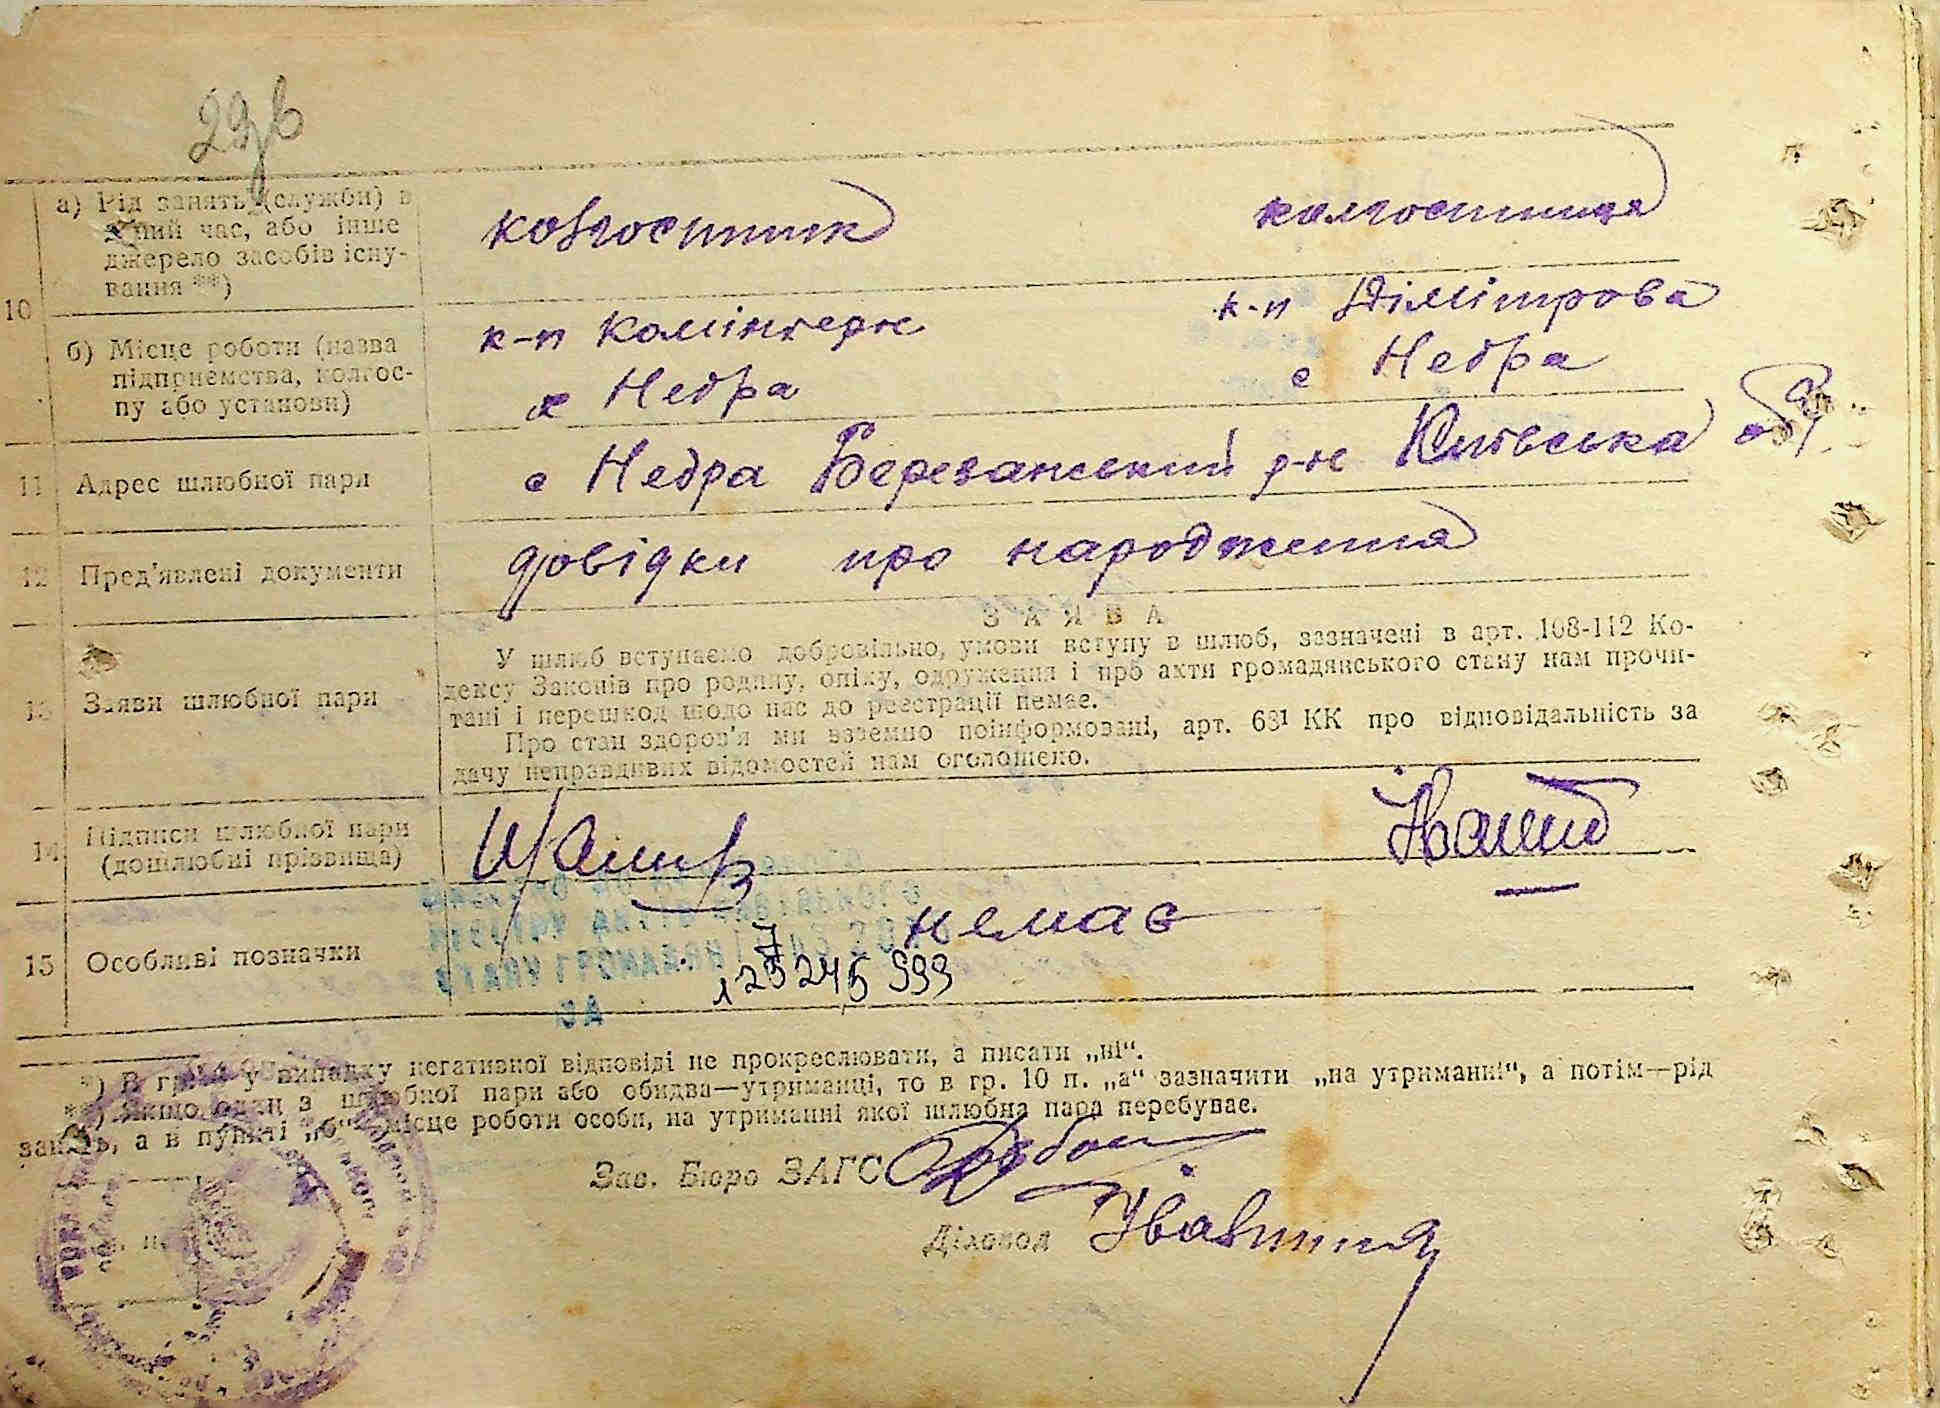 10
а) Рід занять (служби) в
даний час, або інше
джерело засобів існу-
вання **)
колгоспник
колгоспниця
б) Місце роботи (назва
підприємства, колгос-
пу або установи)
к-п Комінтерн
с Недра
к-п Дімітрова
с Недра
11 Адрес шлюбної пари
с Недра Березанський р-н Київська обл.
12 Пред'явлені документи
довідки про народження
13 Заяви шлюбної пари
ЗАЯВА
У шлюб вступаємо добровільно, умови вступу в шлюб, зазначені в арт. 108-112 Ко-
дексу Законів про родину, опіку, одруження і про акти громадянського стану нам прочи-
тані і перешкод щодо нас до реєстрації немає.
Про стан здоров'я ми взаємно поінформовані, арт. 68¹ КК про відповідальність за
дачу неправдивих відомостей нам оголошено.
14 Підписи шлюбної пари
(дошлюбні прізвища)
15 Особливі позначки
немає
*) В гр. 14 у випадку негативної відповіді не прокреслювати, а писати „ні“.
**) Якщо один з шлюбної пари або обидва—утриманці, то в гр. 10 п. „а“ зазначити „на утриманні“, а потім—рід
занять, а в пункті „б“—місце роботи особи, на утриманні якої шлюбна пара перебуває.
Зав. Бюро ЗАГС
Діловод